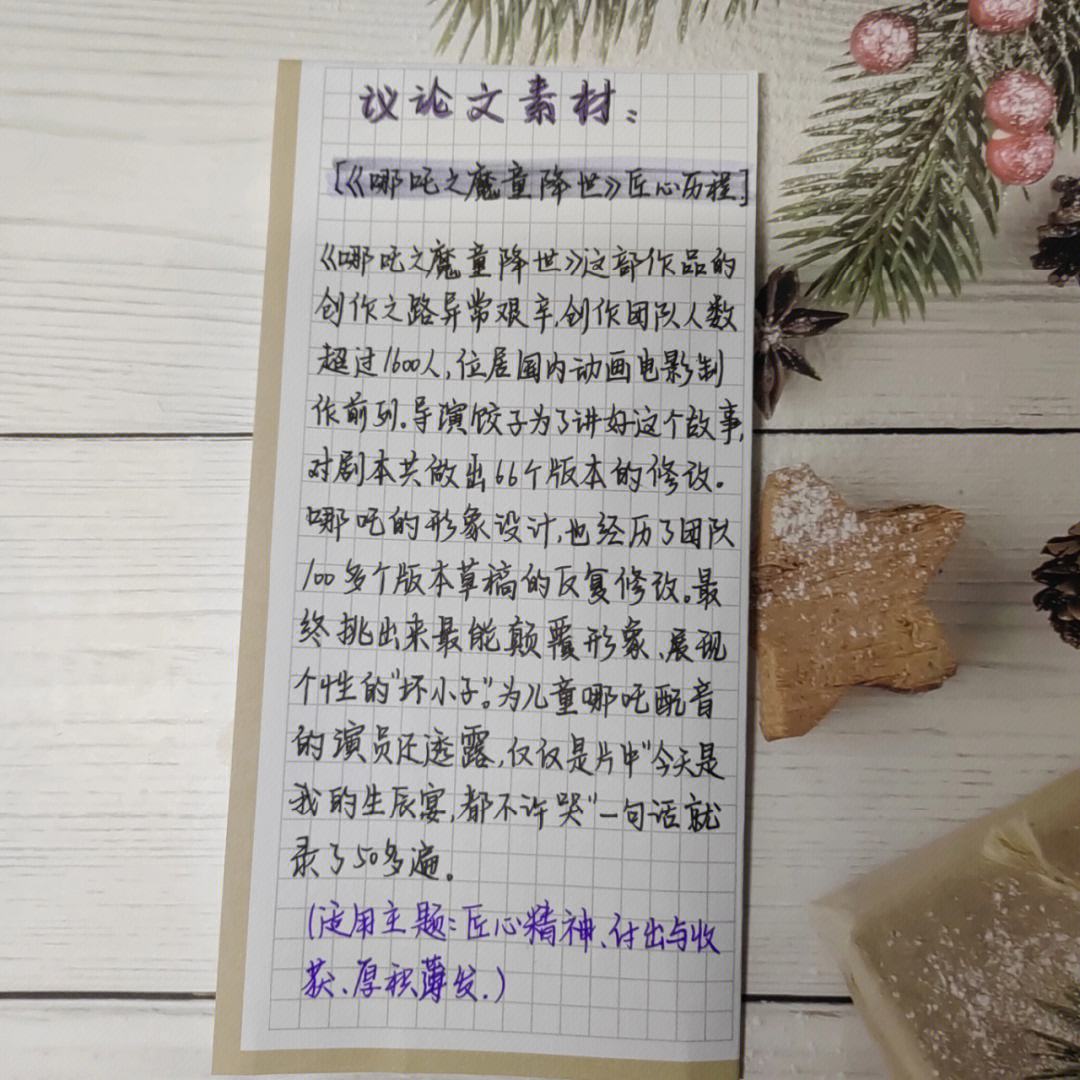 议论文素材：
[《哪吒之魔童降世》匠心历程]
《哪吒之魔童降世》这部作品的
创作之路异常艰辛,创作团队人数
超过1600人,位居国内动画电影制
作前列。导演饺子为了讲好这个故事,
对剧本共做出66个版本的修改。
哪吒的形象设计,也经历了团队
100多个版本草稿的反复修改。最
终挑出来最能颠覆形象、展现
个性的“坏小子”。为儿童哪吒配音
的演员还透露,仅仅是片中“今天是
我的生辰宴,都不许哭”一句话就
录了50多遍。
(适用主题:匠心精神、付出与收
获、厚积薄发.)